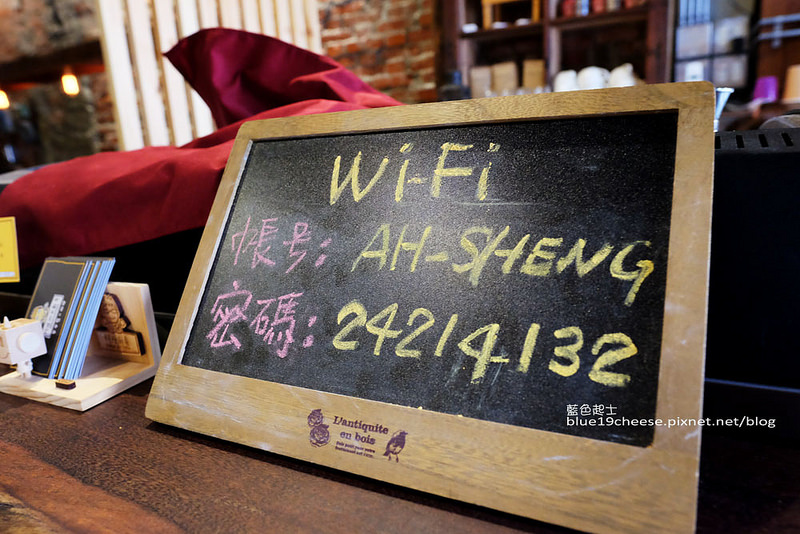 Wi-Fi
帳号: AH-SHENG
密碼: 24214132
L'antiquite
en bois
藍色起士
blue19cheese.pixnet.net/blog